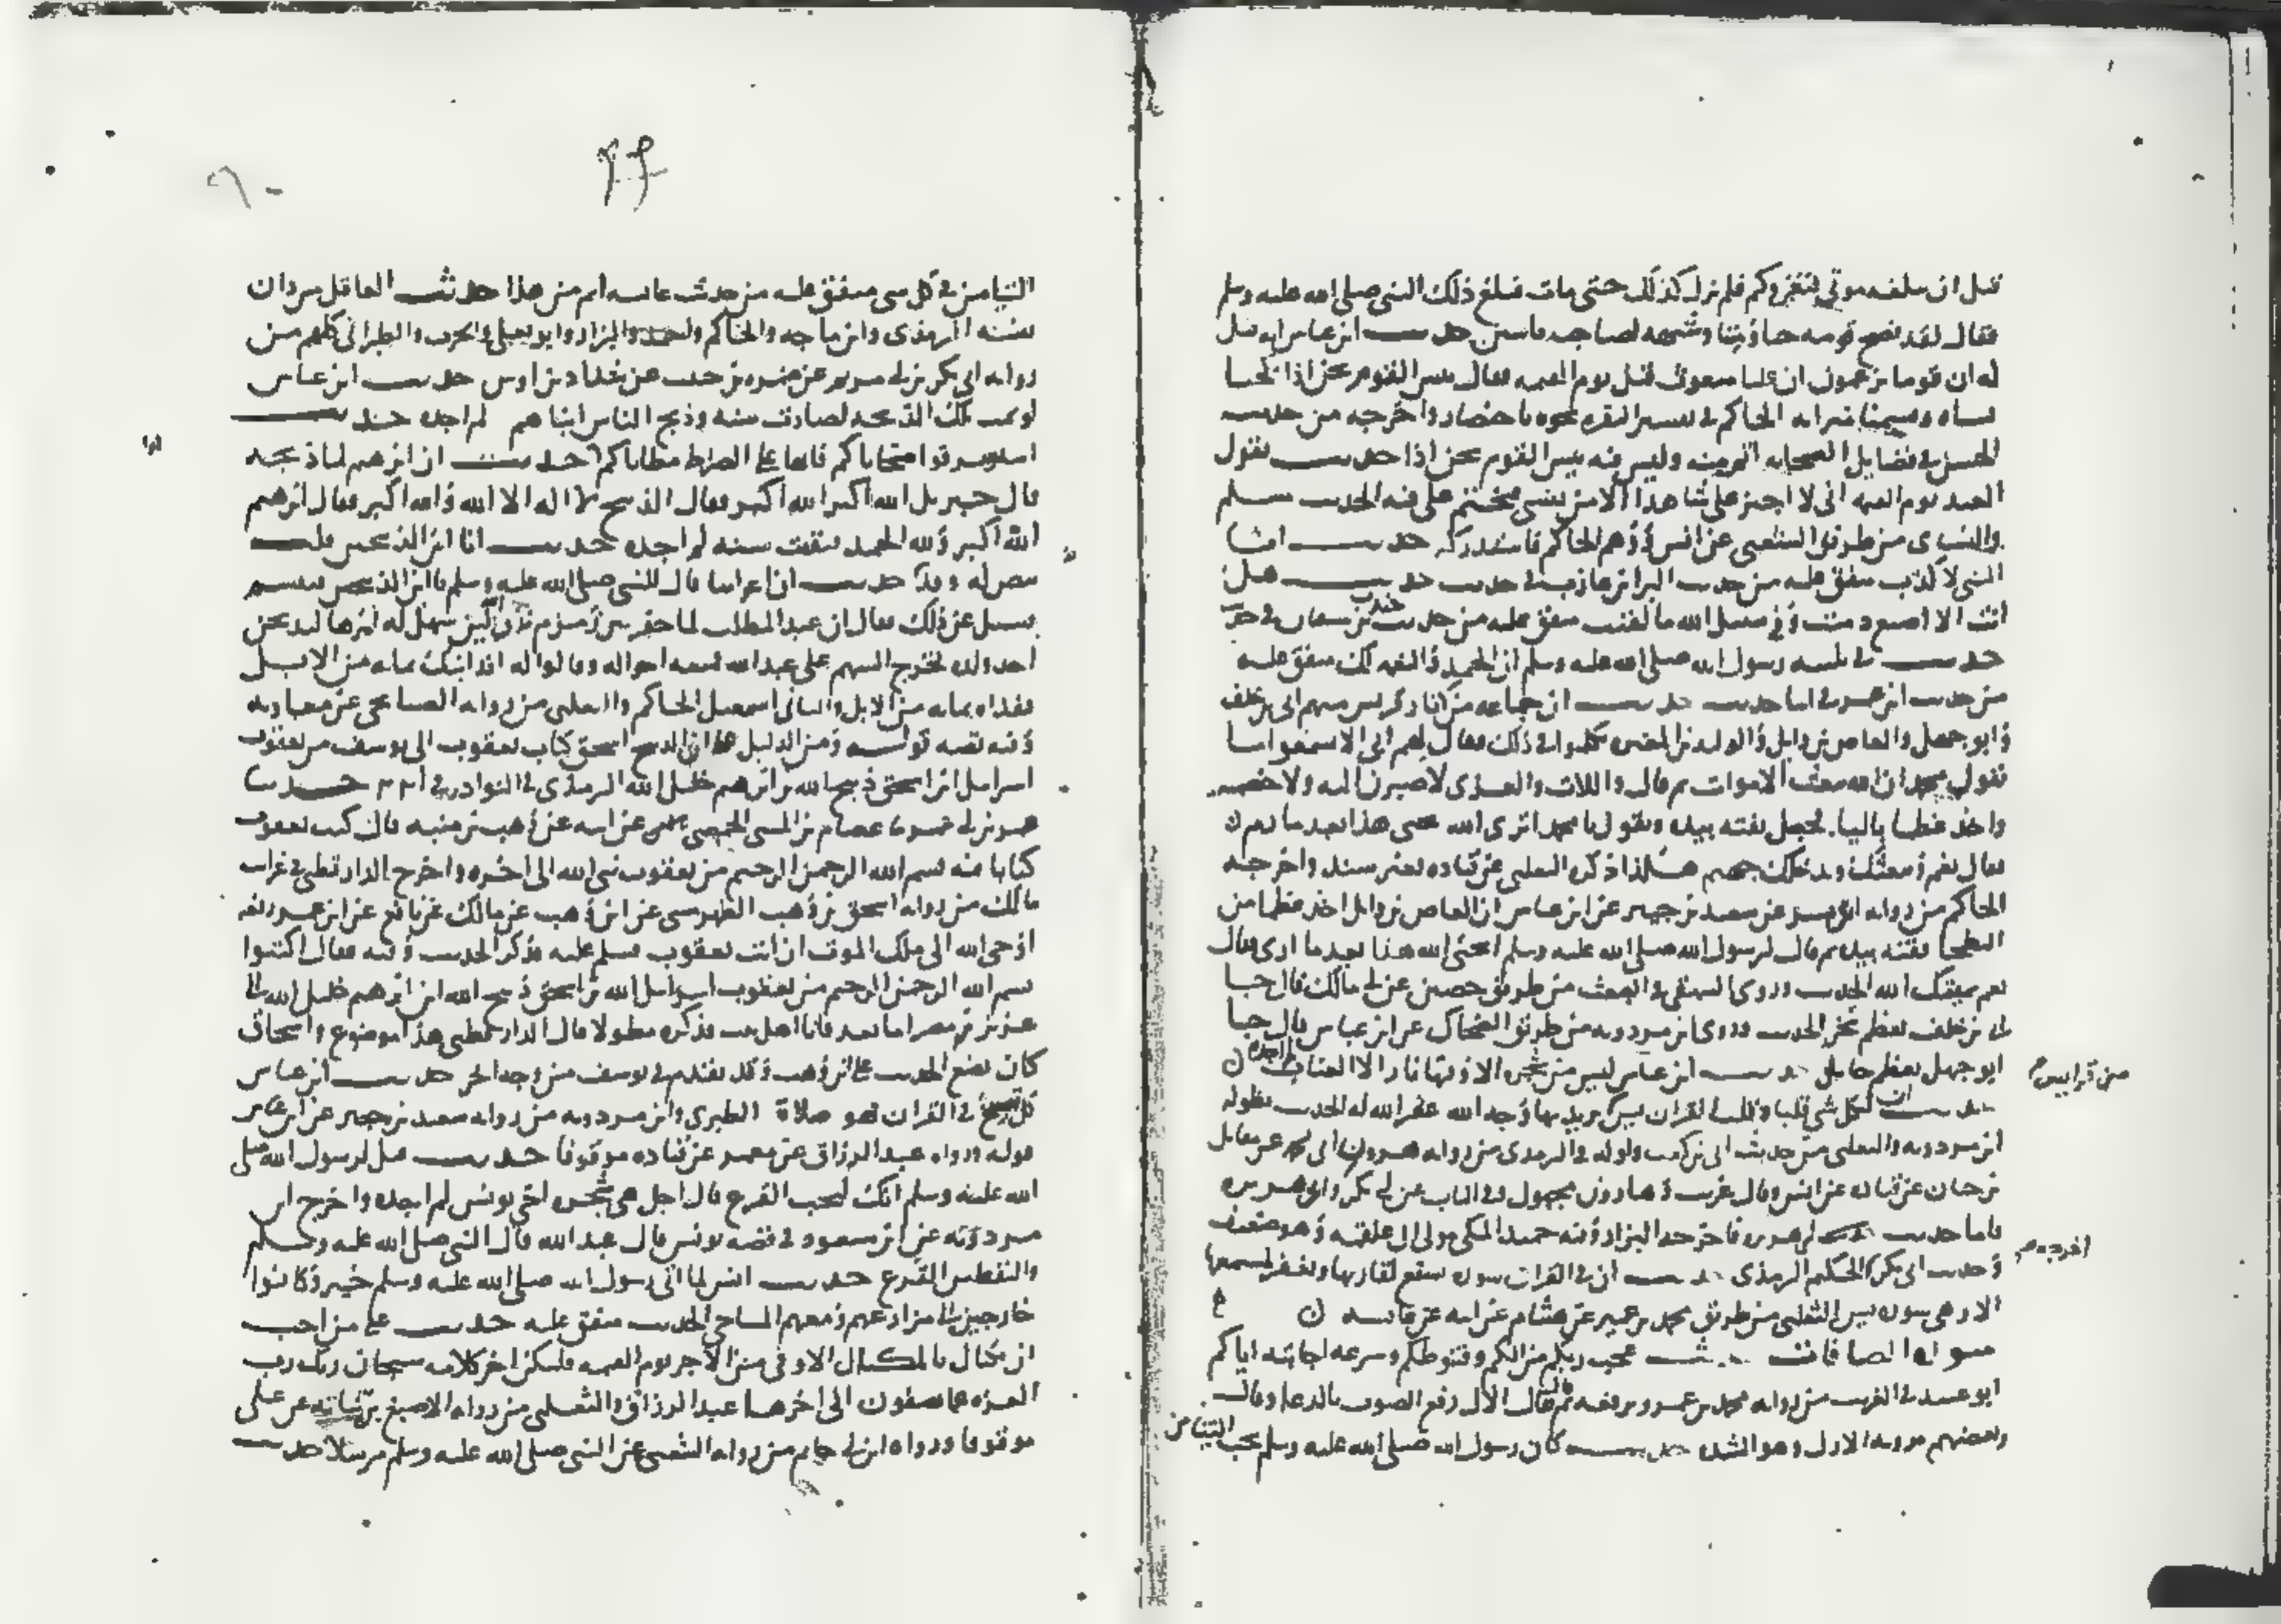 فقال لقد نصح قومه حيا وميتا وشبهه لصاحب ياسين حديث ابن عباس انه قيل
له ان قوما يزعمون ان عليا مبعوث قبل يوم القيمه فقال بئس القوم نحن اذا نكحنا
نساه وقسمنا ميراثه الحاكم في تفسير البقره نحوه باختصار واخرجه من حديث
الحسن في فضايل الصحابه وليس فيه بئس القوم نحن اذا حديث يقول
العبد يوم القيمه اني لا اجيز علي شاهدا الا من نفسي فيختم على فيه الحديث مسلم
والنسائي من طريق الشعبي عن انس ووهم الحاكم فاستدركه حديث انا
النبي لا كذب متفق عليه من حديث البرا بن عازب حديث هل
انت الا اصبع دميت وفي سبيل الله ما لقيت متفق عليه من حديث جندب بن سفيان
حديث تلبيه رسول الله صلى الله عليه وسلم ان الحمد والنعمه لك متفق عليه
من حديث ابن عمر حديث ان جماعه من كفار قريش منهم ابي بن خلف
وابو جهل والعاص بن وايل والوليد بن المغيره تكلموا في ذلك فقال لهم ابي الا تسمعوا ما
يقول محمد ان الله يبعث الاموات ثم قال واللات والعزى لاصيرن اليه ولاخصمنه
واخذ عظما باليا فجعل يفته بيده ويقول يا محمد اترى الله يحيى هذا بعد ما رم
قال نعم ويبعثك ويدخلك جهنم هكذا ذكره الثعلبي عن قتاده بغير سند واخرجه
الحاكم من روايه عن سعيد بن جبير عن ابن عباس ان العاص بن وايل اخذ عظما من
البطحا ففته بيده ثم قال لرسول الله صلى الله عليه وسلم ايحيي الله هذا بعد ما ارى قال
نعم يميتك الله الحديث وروى البيهقي في البعث من طريق حصين عن ابي مالك قال جا
ابي بن خلف بعظم نخر الحديث وروى ابن مردويه من طريق الضحاك عن ابن عباس قال جا
ابو جهل بعظم حايل حديث ابن عباس ليس من شجره الا وفيها نار الا العناب لم اجده
حديث ان لكل شي قلبا وقلب القران يس من قرا يس يريد بها وجه الله غفر الله له الحديث بطوله
ابن مردويه والثعلبي من حديث ابي بن كعب والترمذي من روايه هرون ابي محمد عن مقاتل
بن حيان عن قتاده عن انس وقال غريب وهارون مجهول وفي الباب عن ابي بكر وابي هريره
فاما حديث ابي هريره فاخرجه البزار وفيه حميد المكي مولى ال علقمه وهو ضعيف
وحديث ابي بكر الحكيم الترمذي حديث ان في القران سوره تشفع لقاريها وتغفر لمستمعها
الا وهي سوره يس الثعلبي من طريق محمد بن عمير عن هشام عن ابيه عن عايشه
سوره الصافات حديث عجب ربكم من الكم وقنوطكم وسرعه اجابته اياكم
ابو عبيد في الغريب من روايه محمد بن عمرو يرفعه ثم قال الال رفع الصوت بالدعا وقال
وبعضهم يرويه الازل وهو الشده حديث كان رسول الله صلى الله عليه وسلم يحب التيامن
من قرا يس
اخرجه
التيامن في كل شي متفق عليه من حديث عايشه اتم من هذا حديث العاقل من دان
نفسه الترمذي وابن ماجه والحاكم واحمد والبزار وابو يعلى والطبراني كلهم من
روايه ابي بكر بن ابي مريم عن ضمره بن حبيب عن شداد بن اوس حديث ابن عباس
لو تمت تلك الذبحه لصارت سنه وذبح الناس ابناهم لم اجده حديث
استفرهوا ضحاياكم فانها على الصراط مطاياكم حديث ان ابرهيم لما ذبحه
قال جبريل الله اكبر الله اكبر فقال الذبيح لا اله الا الله والله اكبر فقال ابرهيم
الله اكبر ولله الحمد فبقيت سنه لم اجده حديث انا ابن الذبيحين
حديث ان اعرابيا قال للنبي صلى الله عليه وسلم يا ابن الذبيحين فتبسم
فسئل عن ذلك فقال ان عبد المطلب لما حفر بير زمزم نذر لئن سهل له امرها ليذبحن
احد ولده فخرج السهم على عبد الله فمنعه اخواله وقالوا له افد ابنك بمايه من الابل
ففداه بمايه من الابل والثاني اسمعيل الحاكم والثعلبي من روايه الصنابحي عن معاويه
وفيه قصه قوله ومن الدليل على ان الذبيح اسحق كتاب يعقوب الى يوسف من يعقوب
اسرايل ابن اسحق ذبيح الله بن ابرهيم خليل الله الترمذي في النوادر
عصام بن المثنى الحمصي عن ابيه عن وهب بن منبه قال كتب يعقوب
كتابا فيه بسم الله الرحمن الرحيم من يعقوب نبي الله الى اخره واخرج الدارقطني في غرايب
مالك من روايه اسحق بن وهب الطهرمسي عن ابن وهب عن مالك عن نافع عن ابن عمر رفعه
اوحى الله الى ملك الموت ان ائت يعقوب فسلم عليه فذكر الحديث وفيه فقال اكتبوا
بسم الله الرحمن الرحيم من يعقوب اسرايل الله بن اسحق ذبيح الله ابن ابرهيم خليل الله الى
عزيز مصر اما بعد فانا اهل بيت فذكره مطولا قال الدارقطني هذا موضوع واسحاق
كان يضع الحديث على ابن وهب وقد تقدم في يوسف من وجه اخر حديث ابن عباس
كل تسبيح في القران فهو صلاة الطبري وابن مردويه من روايه سعيد بن جبير عن ابن عباس
قوله ورواه عبد الرزاق عن معمر عن قتاده موقوفا حديث قيل لرسول الله صلى
الله عليه وسلم انك لتحب القرع قال اجل هي شجره اخي يونس لم اجده واخرج ابن
مردويه عن ابن مسعود في قصه يونس قال عبد الله قال النبي صلى الله عليه وسلم
واليقطين القرع حديث انس لما اتى رسول الله صلى الله عليه وسلم خيبر وكانوا
خارجين الى مزارعهم ومعهم المساحي الحديث متفق عليه حديث علي من احب
ان يكتال بالمكيال الاوفى من الاجر يوم القيمه فليكن اخر كلامه سبحان ربك رب
العزه عما يصفون الى اخرها عبد الرزاق والثعلبي من روايه الاصبغ بن نباته عن علي
موقوفا ورواه ابن ابي حاتم من روايه الشعبي عن النبي صلى الله عليه وسلم مرسلا حديث